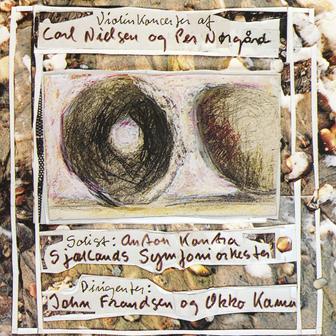 Violinkoncerter af
Carl Nielsen og Per Nørgård
Solist: Anton Kontra
Sjællands Symfoniorkester
Dirigenter:
John Frandsen og Okko Kamu